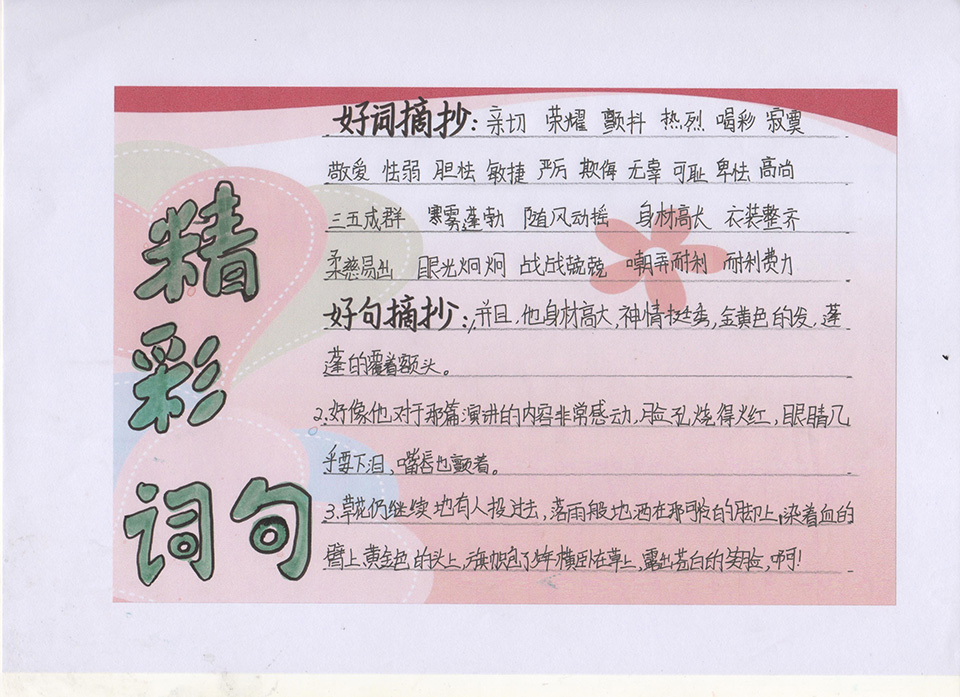 精彩词句
好词摘抄：亲切 荣耀 颤抖 热烈 喝彩 寂寞
敬爱 性弱 胆怯 敏捷 严厉 欺侮 无辜 可耻 卑怯 高尚
三五成群 寒雾蓬勃 随风动摇 身材高大 衣装整齐
柔慈易出 眼光炯炯 战战兢兢 嘲弄耐利 耐利费力
好句摘抄：1,并且,他身材高大,神情挺秀,金黄色的发,蓬
蓬的覆着额头。
2.好像他对于那篇演讲的内容非常感动,脸孔烧得火红,眼睛几
乎要下泪,嘴唇也颤着。
3.草花仍继续地有人投过去,落雨般地洒在那可怜的脚上,染着血的
臂上,黄金色的头上,旗帜包了少年横卧在草上,露出苍白的笑脸,啊!